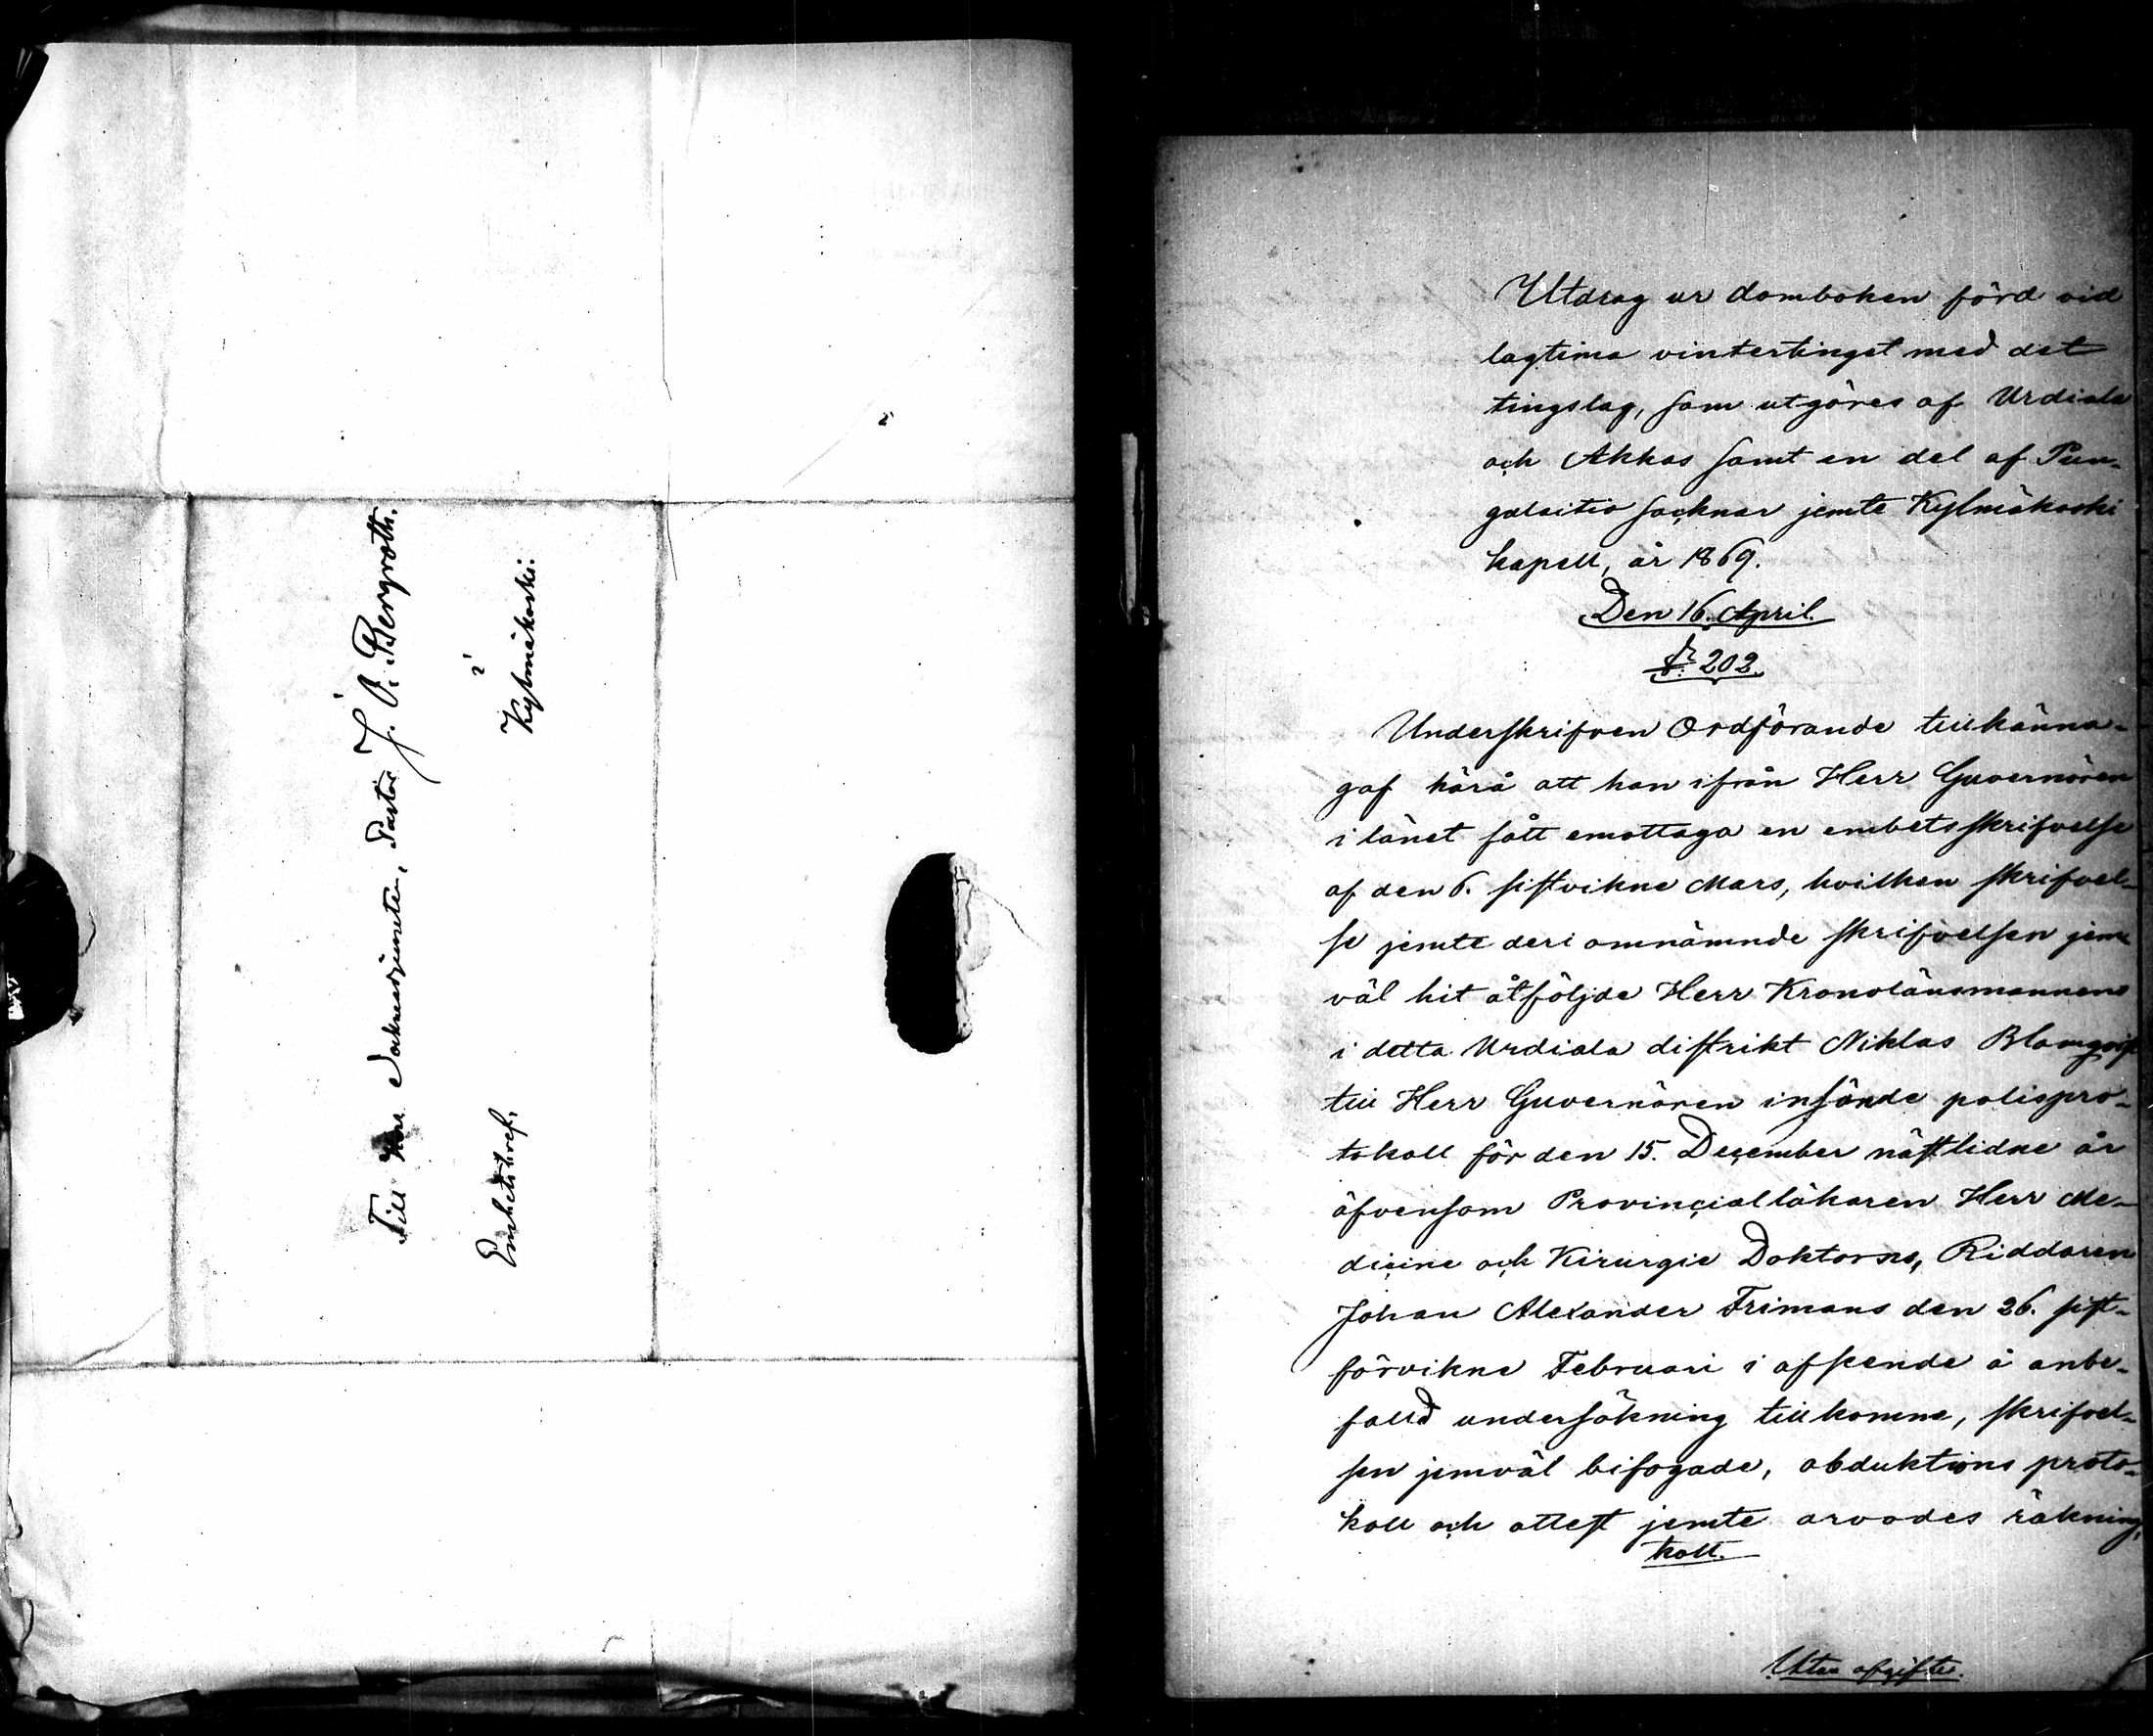 Till Herr Sockneadjunkten, Pastor J. O. Bergroth.
i
Kylmäkoski.
Embetsbref.
Utdrag ur domboken förd vid
lagtima vintertinget med det
tingslag, som utgöres af Urdiala
och Akkas samt en del af Pun-
galaitio socknar jemte Kylmäkoski
kapell, år 1869.
Den 16. April.
§. 202.
Underskrifven Ordförande tillkänna-
gaf härå att han ifrån Herr Guvernören
i länet fått emottaga en embetsskrifvelse
af den 6. sistvikne Mars, hvilken skrifvel-
se jemte deri omnämnde skrifvelsen jem
väl hit åtföljde Herr Kronolänsmannens
i detta Urdiala distrikt Niklas Blomqvist
till Herr Guvernören insände polispro-
tokoll för den 15. December nästlidne år
äfvensom Provincialläkaren Herr Me-
dicine och Kirurgie Doktorns, Riddaren
Johan Alexander Frimans den 26. sist-
förvikne Februari i afseende å anbe-
falld undersökning tillkomne, skrifvel-
sen jemväl bifogade, obduktions proto-
koll och attest jemte arvodes räkning,
koll.
Utan afgifter.